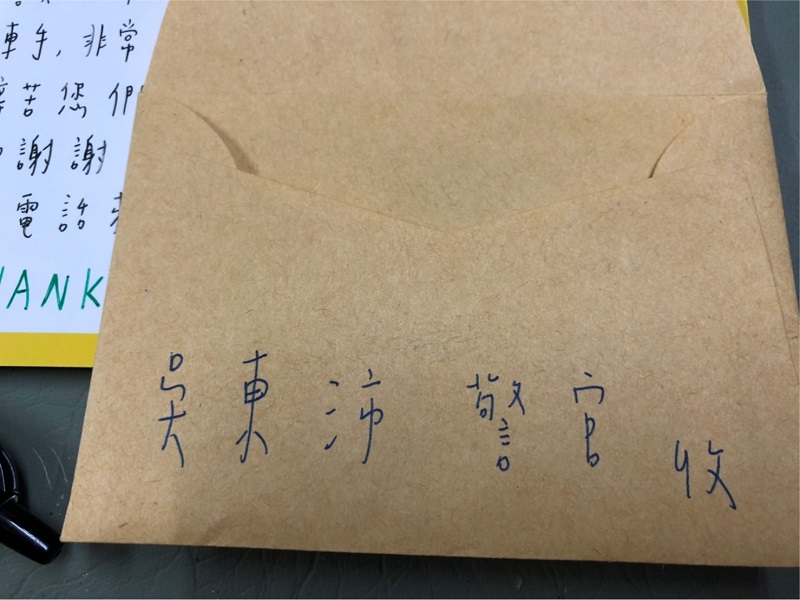 車手，非常
辛苦您們
謝謝
電話
THANK
吳東沛 警官 收